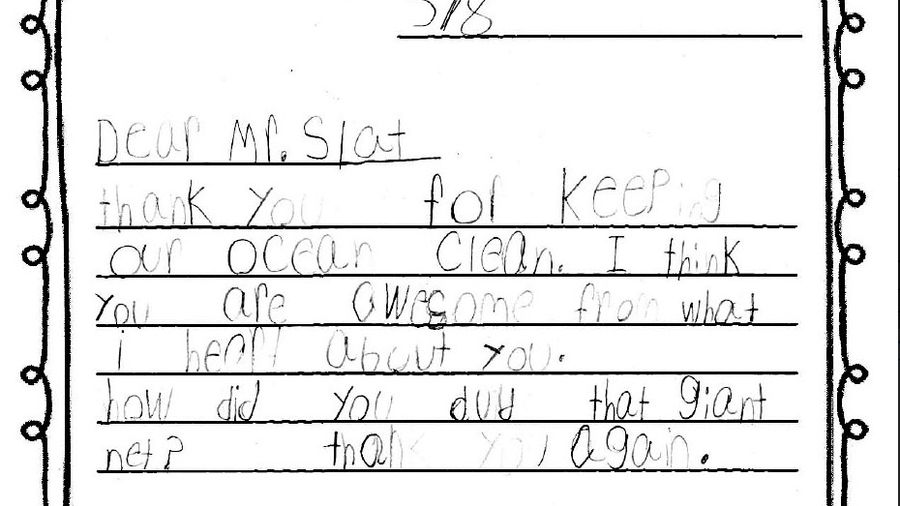 5/8
Dear Mr. Slat
thank you for keeping
our ocean clean. I think
you are awesome from what
i about you.
how did you that giant
net? thank you again.